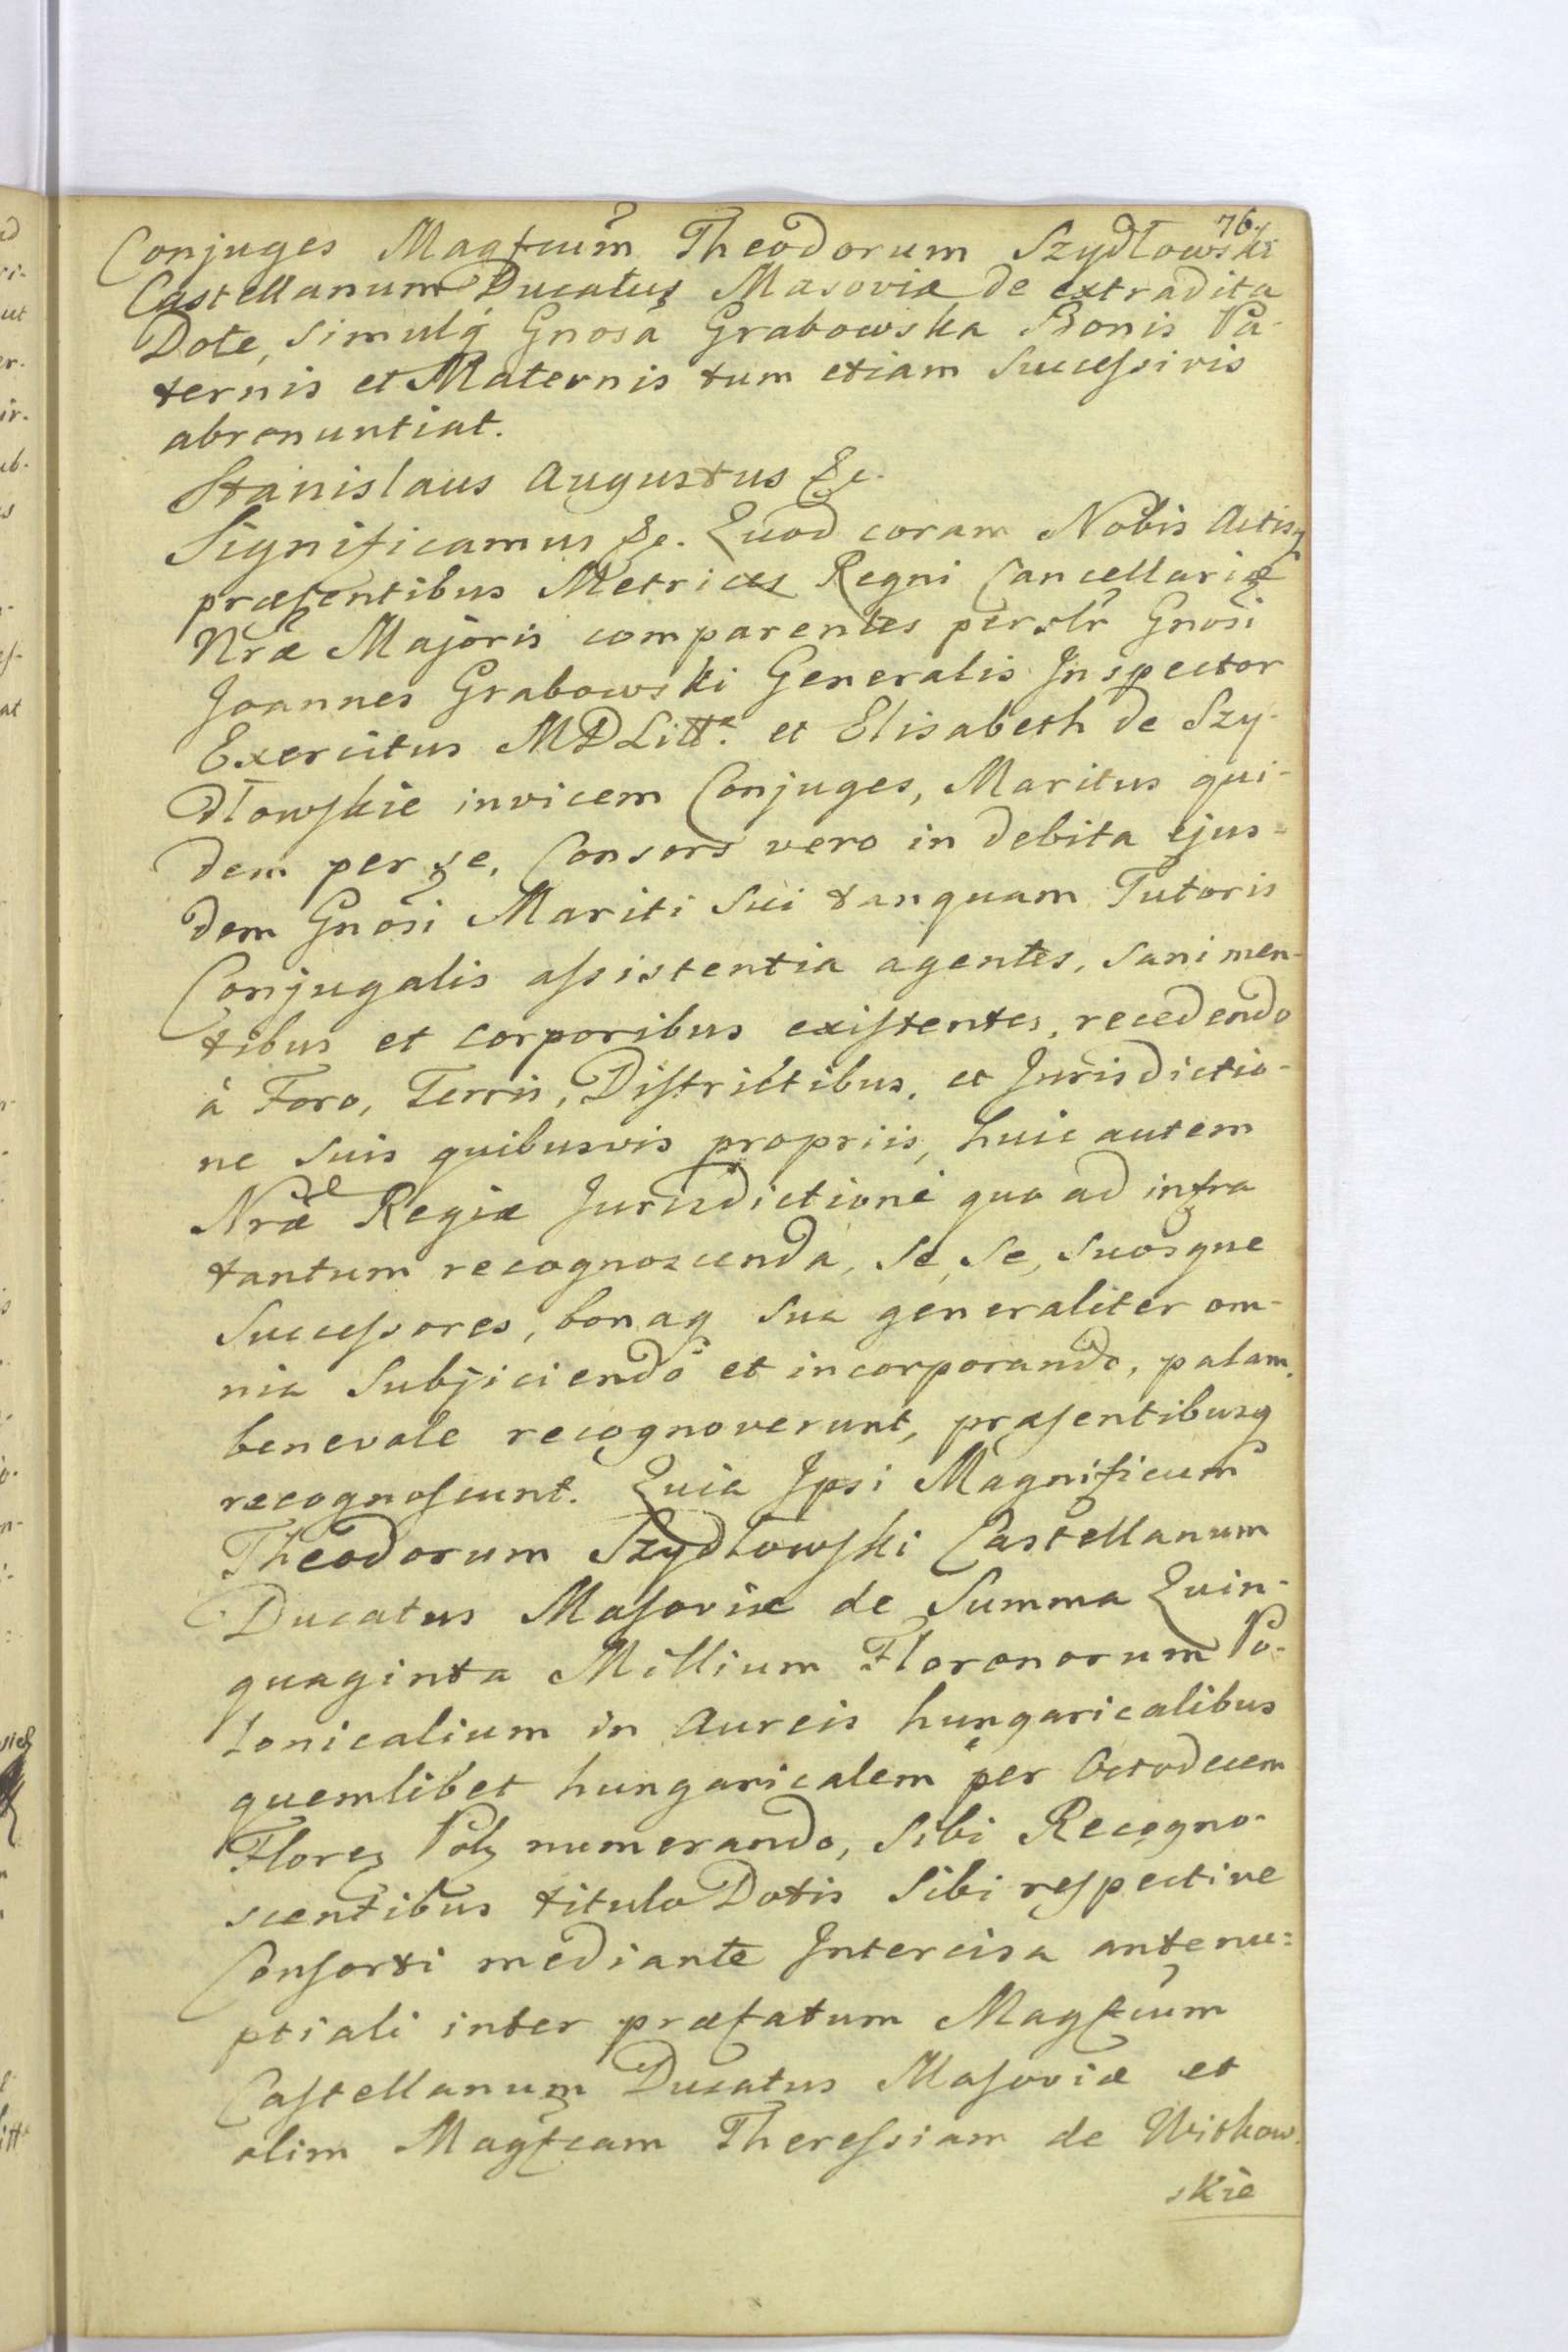 76.
Conjuges Magfcum Theodorum Szydłowski
Castellanum Ducatus Masoviæ de extradita
Dote, simulq Gnosa Grabowska Bonis Pa-
ternis et Maternis tum etiam Successivis
abrenuntiat.
Stanislaus Augustus &c.
Significamus &c. Quod coram Nobis Actisq
præsentibus Metrices Regni Cancellariæ
Nræ Majoris comparentes persltr Gnosi
Joannes Grabowski Generalis Inspector
Exercitus MDLitt. et Elisabeth de Szy-
dłowskie invicem Conjuges, Maritus qui-
dem per se, Consors vero in debita ejus=
dem Gnosi Mariti Sui tanquam Tutoris
Conjugalis assistentia agentes, sani men-
tibus et corporibus existentes, recedendo
à Foro, Terris, Districtibus, et Jurisdictio-
ne suis quibusvis propriis, huic autem
Nræ Regiæ Jurisdictioni quo ad infra
tantum recognoscenda, Se, Se, Suosque
Successores, bonaq sua generaliter om-
nia Subjiciendo et incorporando, palam,
benevole recognoverunt, præsentibusq
recognoscunt. Quia Ipsi Magnificum
Theodorum Szydłowski Castellanum
Ducatus Masoviæ de Summa Quin-
quaginta Millium Florenorum Po-
lonicalium in Aureis hungaricalibus
quemlibet hungaricalem per Octodecem
Flores Pol numerando, Sibi Recogno-
scentibus titulo Dotis Sibi respective
Consorti mediante Intercisa antenu=
ptiali inter præfatum Magfcum
Castellanum Ducatus Masoviæ et
olim Magfcam Theressiam de Witkow-
skie